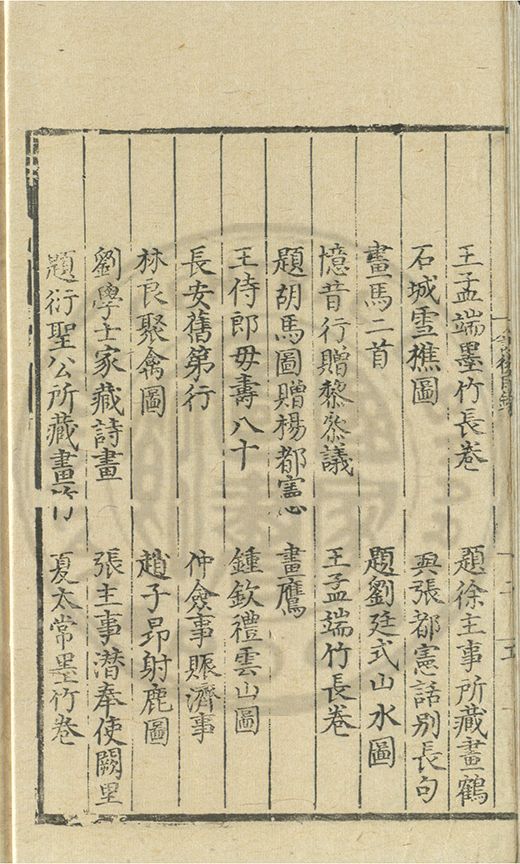 王孟端墨竹長卷　題徐主事所藏畫鶴
石城雪樵圖　與張都憲話別長句
畫馬二首　題劉廷式山水圖
憶昔行贈黎叅議　王孟端竹長卷
題胡馬圖贈楊都憲　畫鷹
王侍郎毋壽八十　鍾欽禮雲山圖
長安舊第行　仲僉事賑濟事
林良聚禽圖　趙子昂射鹿圖
劉學士家藏詩畫　張主事潜奉使闕里
題衍聖公所藏畫竹　夏太常墨竹卷